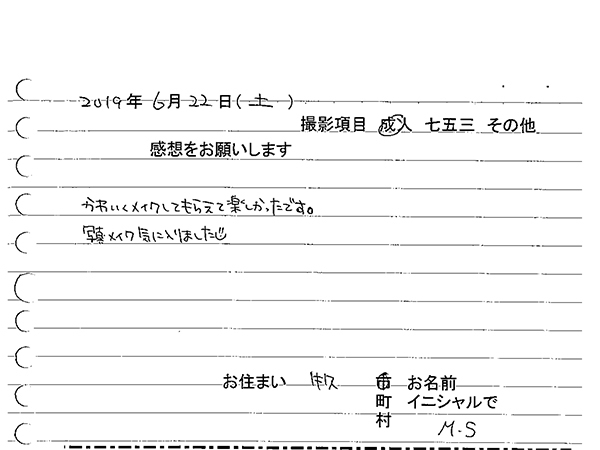 2019年 6月 22日(土)
撮影項目 成人 七五三 その他
感想をお願いします
かわいくメイクしてもらえて楽しかったです。
写真メイク気に入りました
お住まい 市 お名前
町 イニシャルで
村 M.S